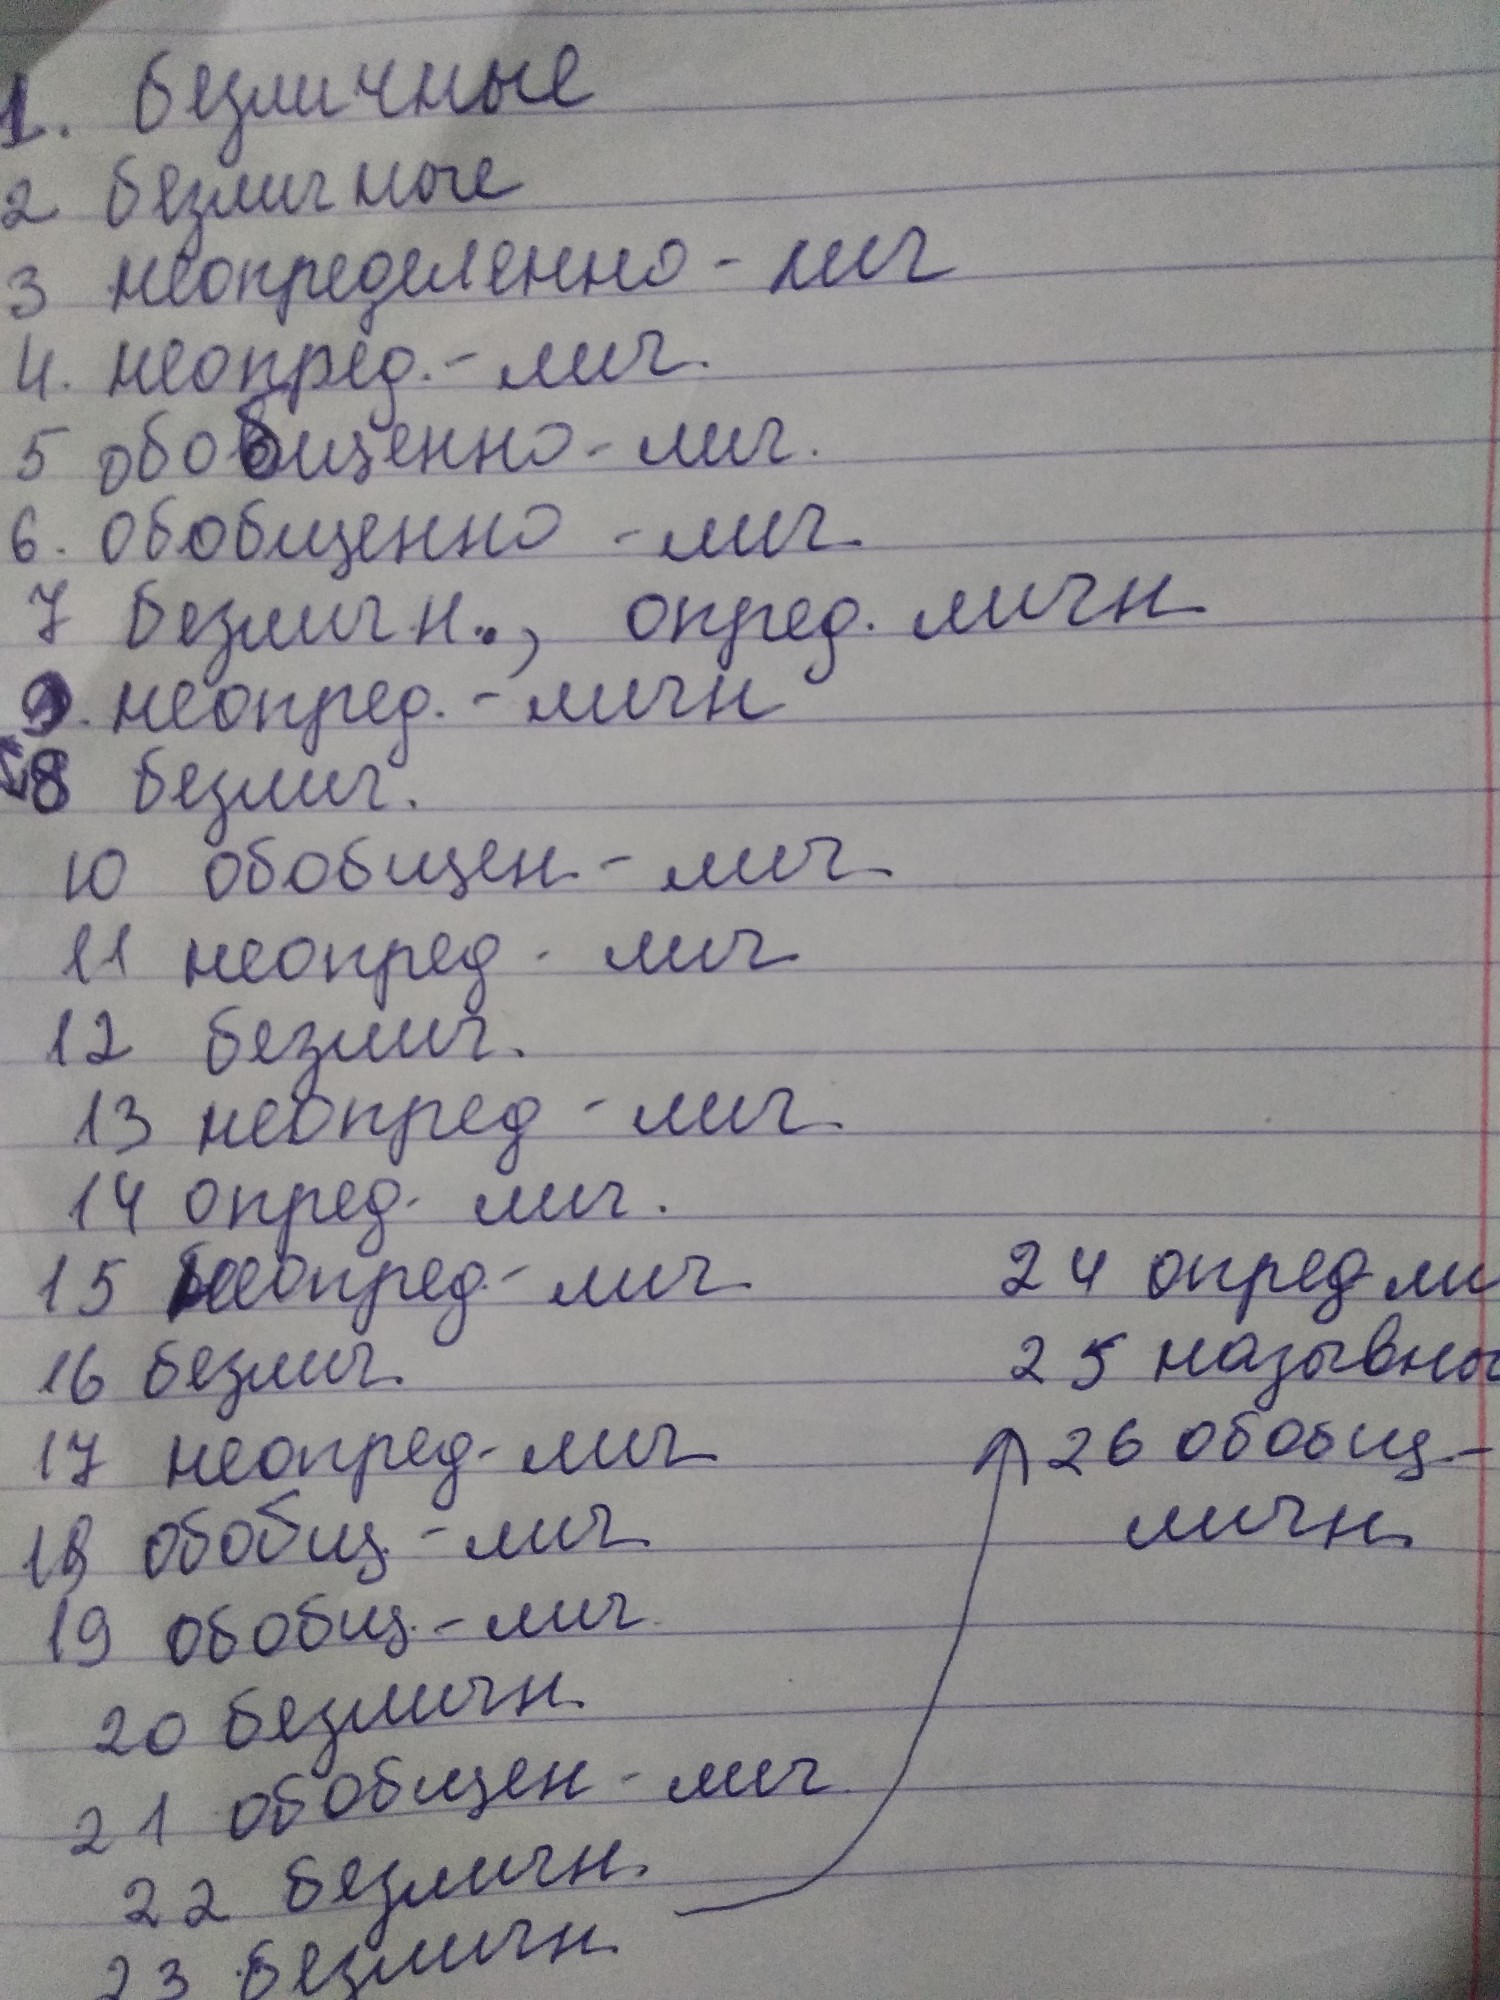 1. безличные
2 безличные
3 неопределенно - лич
4. неопред. - лич.
5 обобщенно - лич.
6. обобщенно - лич.
7 безличн., опред. личн
9. неопред. - личн
8 безлич.
10 обобщен - лич.
11 неопред - лич
12 безлич.
13 неопред - лич.
14 опред - лич.
15 неопред. - лич.
16 безлич.
17 неопред - лич
18 обобщ. - лич
19 обобщ. - лич.
20 безличн.
21 обобщен - лич
22 безличн.
23 безличн
24 опред ли
25 назывны
26 обобщ. -
личн.